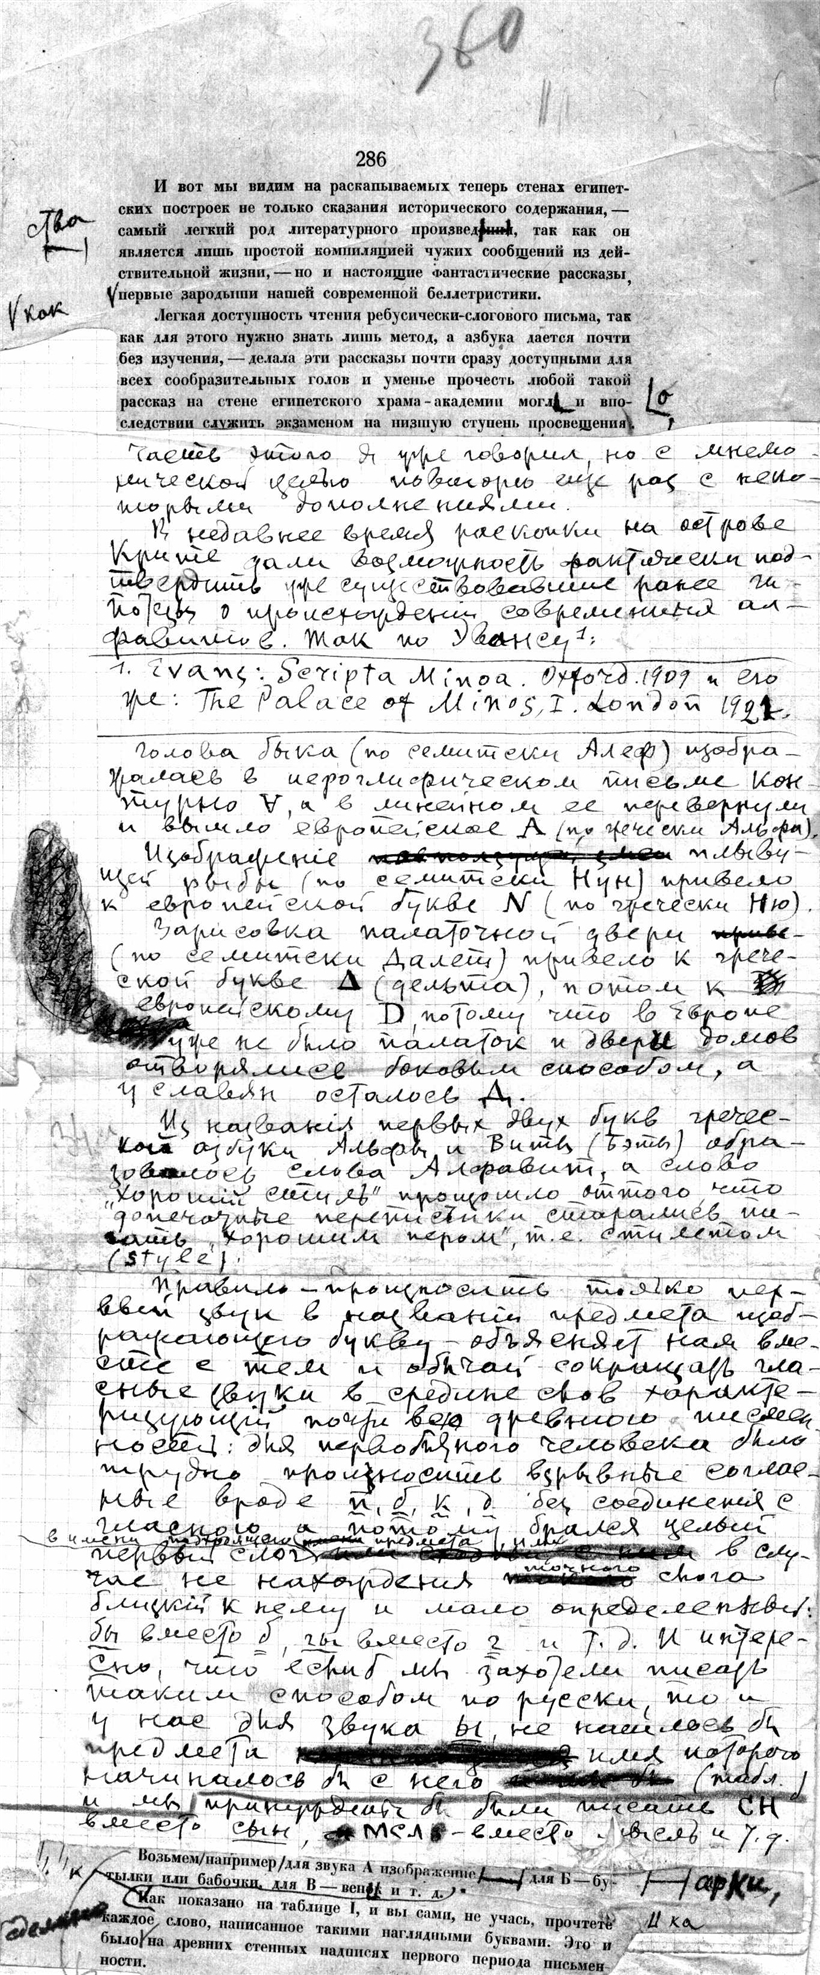 360
286
И вот мы видим на раскапываемых теперь стенах египет-
ских построек не только сказания исторического содержания, —
ства
самый легкий род литературного произвед, так как он
является лишь простой компиляцией чужих сообщений из дей-
ствительной жизни, — но и настоящие фантастические рассказы,
как
первые зародыши нашей современной беллетристики.
Легкая доступность чтения ребусически-слогового письма, так
как для этого нужно знать лишь метод, а азбука дается почти
без изучения, — делала эти рассказы почти сразу доступными для
всех сообразительных голов и уменье прочесть любой такой
рассказ на стене египетского храма-академии могл и впо-
о
следствии служить экзаменом на низшую ступень просвещения.
Часть этого я уже говорил, но с мнемо-
нической целью повторю еще раз с неко-
торыми дополнениями.
В недавнее время раскопки на острове
Крите дали возможность фактически под-
твердить уже существовавшие ранее ги-
потезы о происхождении современных ал-
фавитов. Так по Эвансу 1:
1. Evans: Scripta Minoa. Oxford. 1909 и его
же: The Palace of Minos, I. London 1921.
голова быка (по семитски Алеф) изобра-
жалась в иероглифическом письме кон-
турно ∀, а в линейном ее перевернули
и вышло европейское А (по гречески Альфа).
Изображение плыву-
щей рыбы (по семитски Нун) привело
к европейской букве N (по гречески Ню).
Зарисовка палаточной двери
(по семитски Далет) привело к грече-
ской букве Δ (дельта), потом к
европейскому D, потому что в Европе
уже не было палаток и двери домов
отворялись боковым способом, а
у славян осталось Д.
Из названія первых двух букв гречес-
кой азбуки Альфы и Виты (Бэты) обра-
зовалось слова Алфавит, а слово
„хороший стиль" произошло оттого, что
допечатные переписчики старались пи-
сать „хорошим пером", т.е. стилетом
(style).
Правило — произносить только пер-
вый звук в названіи предмета изоб-
ражающего букву — объясняет нам вме-
сте с тем и обычай сокращать гла-
сные звуки в средине слов характе-
ризующий почти всю древнюю письмен-
ность: для первобытного человека было
трудно произносить взрывные соглас-
ные вроде п, б, к, д без соединения с
гласною а потому брался целый
в имени подходящего предмета, или
первый слог в слу-
точного
чае не нахождения слога
близкій к нему и мало определенный:
бы вместо б, гы вместо г и т. д. И интере-
сно, что еслиб мы захотели писать
таким способом по русски, то и
у нас для звука ы, не нашлось бы
предмета имя которого
начиналось бы с него (табл. )
и мы принуждены бы были писать СН
вместо сын, мсл — вместо мысль и т. д.
Возьмем/например/для звука А изображение для Б — бу-
арки,
тылки или бабочки, для В — вен и т. д.
Как показано на таблице I, и вы сами, не учась, прочтете
ка
каждое слово, написанное такими наглядными буквами. Это и
сделано
было на древних стенных надписях первого периода письмен-
ности.